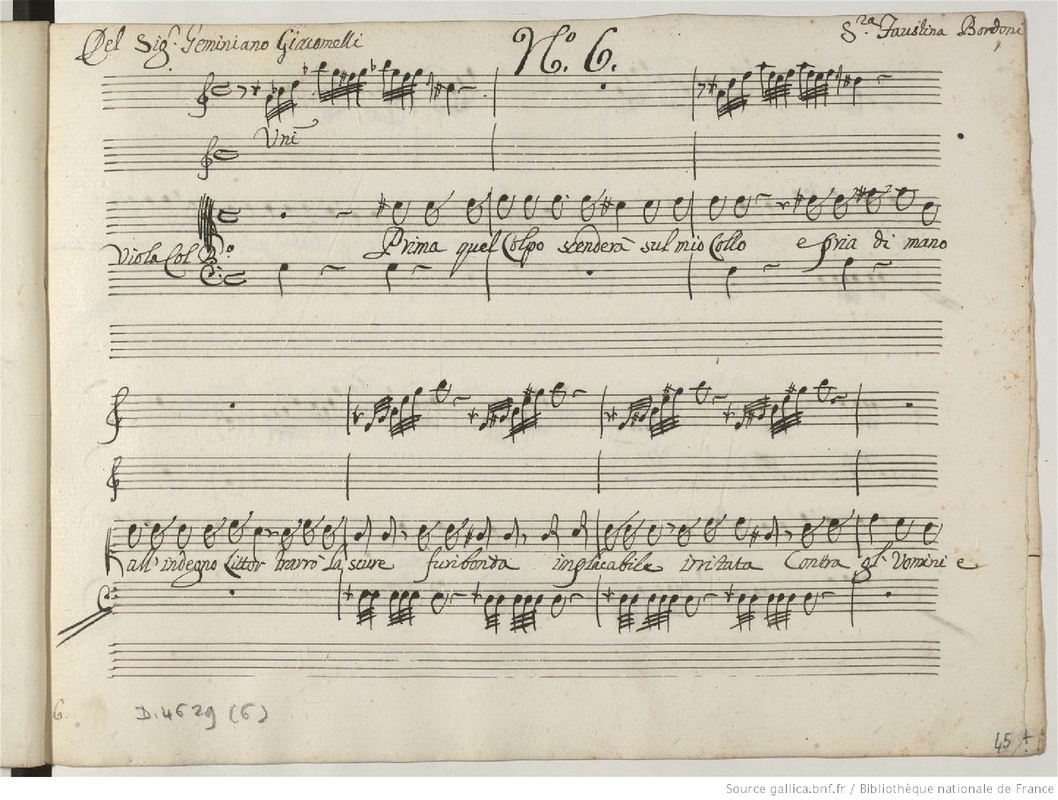 Del Sig.r Geminiano Giacomelli
N.o 6.
S.ra Faustina Bordoni
Vni
Prima quel Colpo scenderà sul mio Collo e pria di mano
Viola Col B.o
all' indegno Littor trarrò la scure furibonda implacabile irritata Contra gl' Vomini e
6.
D.4629 (6)
45
Source gallica.bnf.fr / Bibliothèque nationale de France